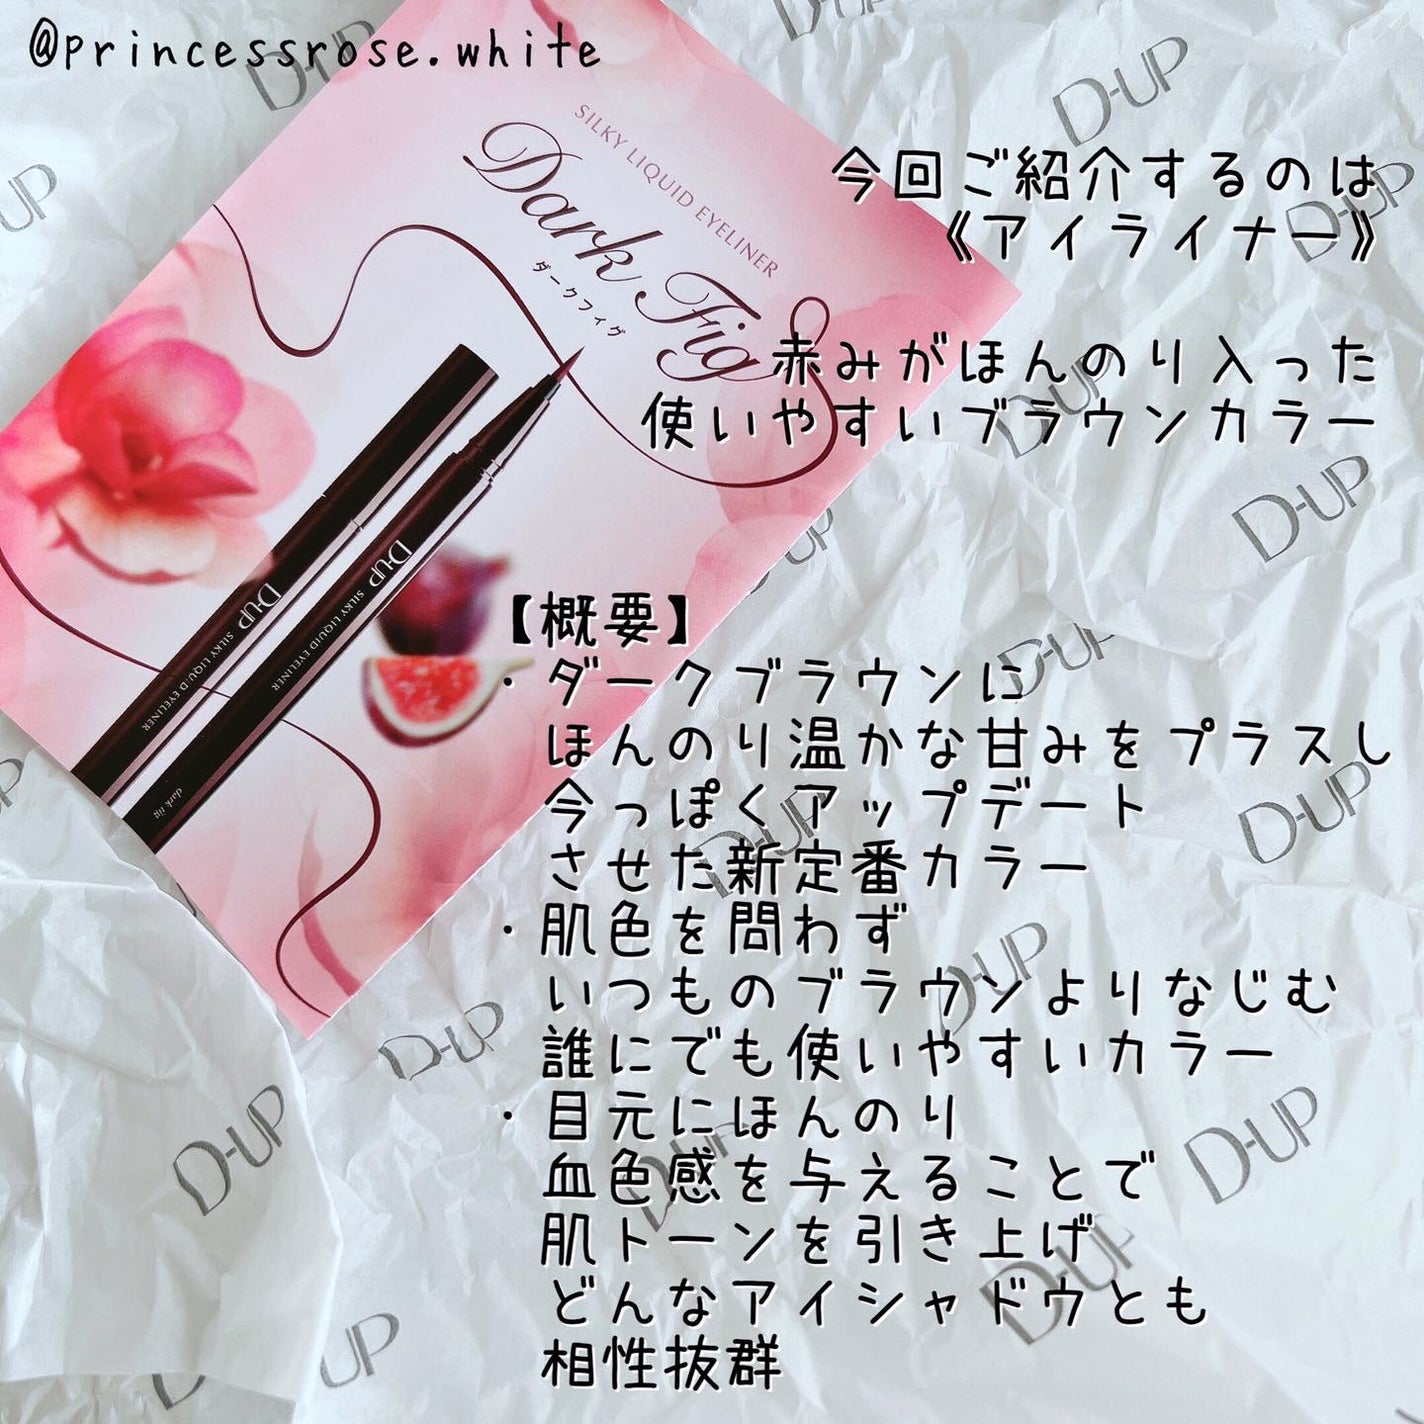 @princessrose.white
SILKY LIQUID EYELINER
Dark Fig
ダークフィグ
今回ご紹介するのは
《アイライナー》
赤みがほんのり入った
使いやすいブラウンカラー
D-UP SILKY LIQUID EYELINER
D-UP SILKY LIQUID EYELINER
dark fig
【概要】
・ダークブラウンに
ほんのり温かな甘みをプラスし
今っぽくアップデート
させた新定番カラー
・肌色を問わず
いつものブラウンよりなじむ
誰にでも使いやすいカラー
・目元にほんのり
血色感を与えることで
肌トーンを引き上げ
どんなアイシャドウとも
相性抜群
D-UP
D-UP
D-UP
D-UP
D-UP
D-UP
D-UP
D-UP
D-UP
D-UP
D-UP
D-UP
D-UP
D-UP